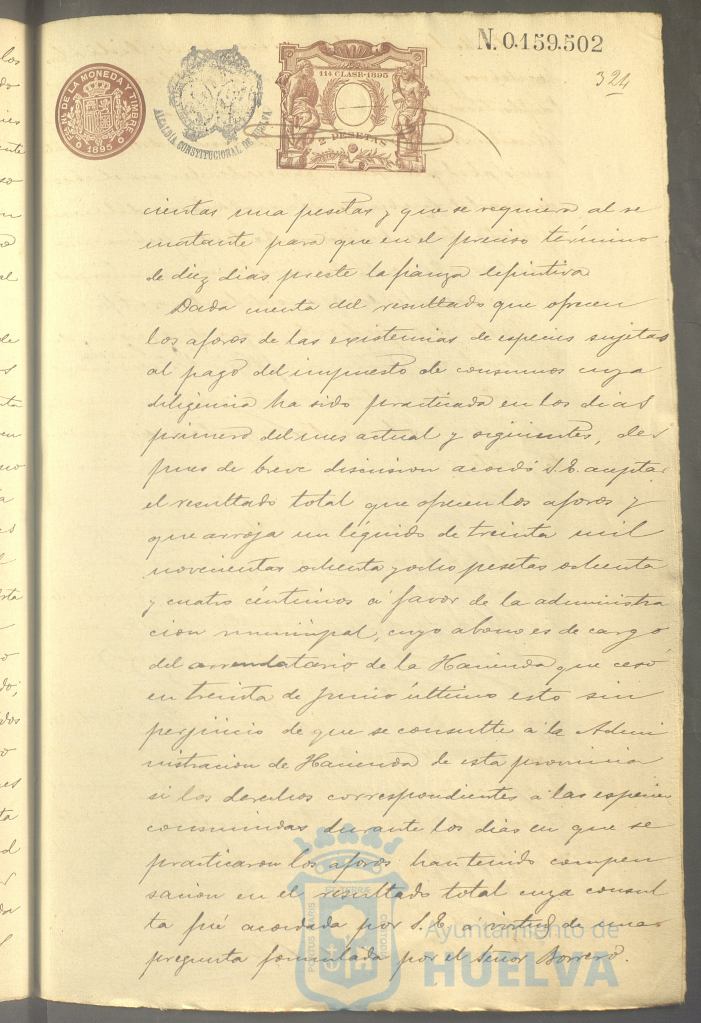 N. 0.159.502
324
FAB. NAL. DE LA MONEDA Y TIMBRE
1895
ALCALDIA CONSTITUCIONAL DE HUELVA
11ª CLASE-1895
2 PESETAS
cientas una pesetas y que se requiera al re
matante para que en el preciso término
de diez dias preste la fianza definitiva
Dada cuenta del resultado que ofrecen
los aforos de las existencias de especies sujetas
al pago del impuesto de consumos cuya
diligencia ha sido practicada en los dias
primero del mes actual y siguientes, des
pues de breve discusion acordó S. E. aceptar
el resultado total que ofrecen los aforos y
que arroja un líquido de treinta mil
novecientas ochenta y ocho pesetas ochenta
y cuatro céntimos á favor de la administra
cion municipal, cuyo abono es de cargo
del arrendatario de la Hacienda que cesó
en treinta de Junio último esto sin
perjuicio de que se consulte á la Admi
nistracion de Hacienda de esta provincia
si los derechos correspondientes á las especies
consumidas durante los dias en que se
practicaron los aforos han tenido compen
sacion en el resultado total cuya consul
ta fué acordada por S. E. a virtud de una
pregunta formulada por el Señor Borrero.
PORTUS MARIS
ET TERRAE
CUSTODIA
Ayuntamiento de
HUELVA